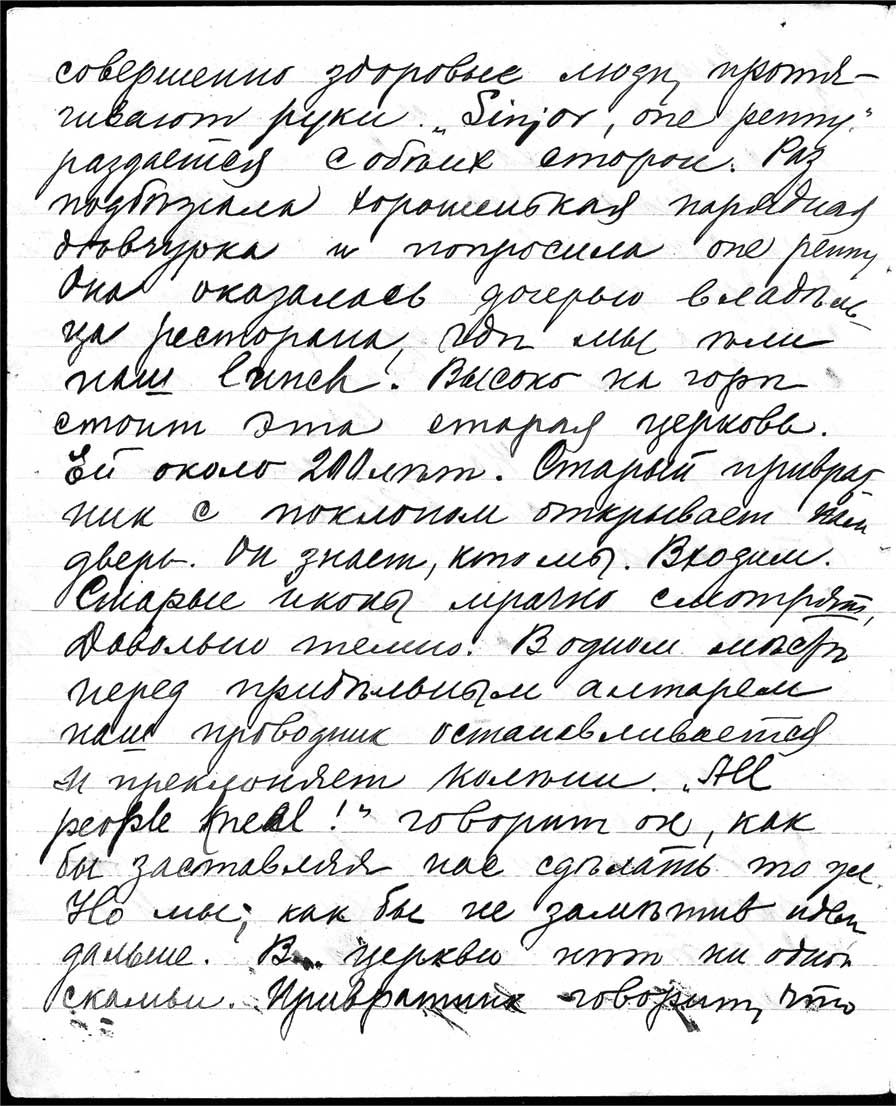 совершенно здоровые люди протя-
гивают руки. „Sinjor, one penny“
раздается с обѣих сторон. Раз
подбѣжала хорошенькая нарядная
дѣвчурка и попросила one penny.
Она оказалась дочерью владѣль-
ца ресторана, гдѣ мы ѣли
наш lunch. Высоко на горѣ
стоит эта старая церковь.
Ей около 200 лѣт. Старый приврат
ник с поклоном открывает нам
дверь. Он знает, кто мы. Входим.
Старые иконы мрачно смотрят,
Довольно темно. В одном мѣстѣ
перед придѣльным алтарем
наш проводник останавливается
и преклоняет колѣни. „All
people kneel!“ говорит он, как
бы заставляя нас сдѣлать то же.
Но мы, как бы не замѣтив идем
дальше. В церкви нѣт ни одной
скамьи. Привратник говорит, что